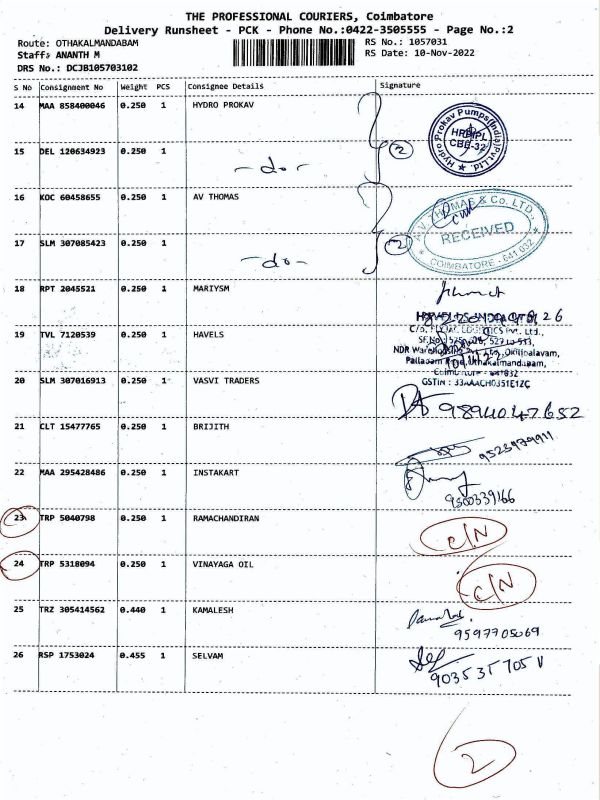 THE PROFESSIONAL COURIERS, Coimbatore
Delivery Runsheet - PCK - Phone No.:0422-3505555 - Page No.:2
Route: OTHAKALMANDABAM RS No.: 1057031
Staff: ANANTH M RS Date: 10-Nov-2022
DRS No.: DCJB105703102
S No Consignment No Weight PCS Consignee Details Signature
14 MAA 858400046 0.250 1 HYDRO PROKAV
Hydro Prokav Pumps(India)Pvt.Ltd.
CBE-32
15 DEL 120634923 0.250 1 -do- 2
16 KOC 60458655 0.250 1 AV THOMAS
A.V. THOMAS & Co. LTD.
RECEIVED
COIMBATORE - 641 032
17 SLM 307085423 0.250 1 -do- 2
18 RPT 2045521 0.250 1 MARIYSM
19 TVL 7120539 0.250 1 HAVELS
NDR
GSTIN : 33AAACH0351E1ZC
20 SLM 307016913 0.250 1 VASVI TRADERS
9894047652
21 CLT 15477765 0.250 1 BRIJITH
9523979911
22 MAA 295428486 0.250 1 INSTAKART
9500339166
23 TRP 5040798 0.250 1 RAMACHANDIRAN C/N
24 TRP 5318094 0.250 1 VINAYAGA OIL C/N
25 TRZ 305414562 0.440 1 KAMALESH
9597705069
26 RSP 1753024 0.455 1 SELVAM
2